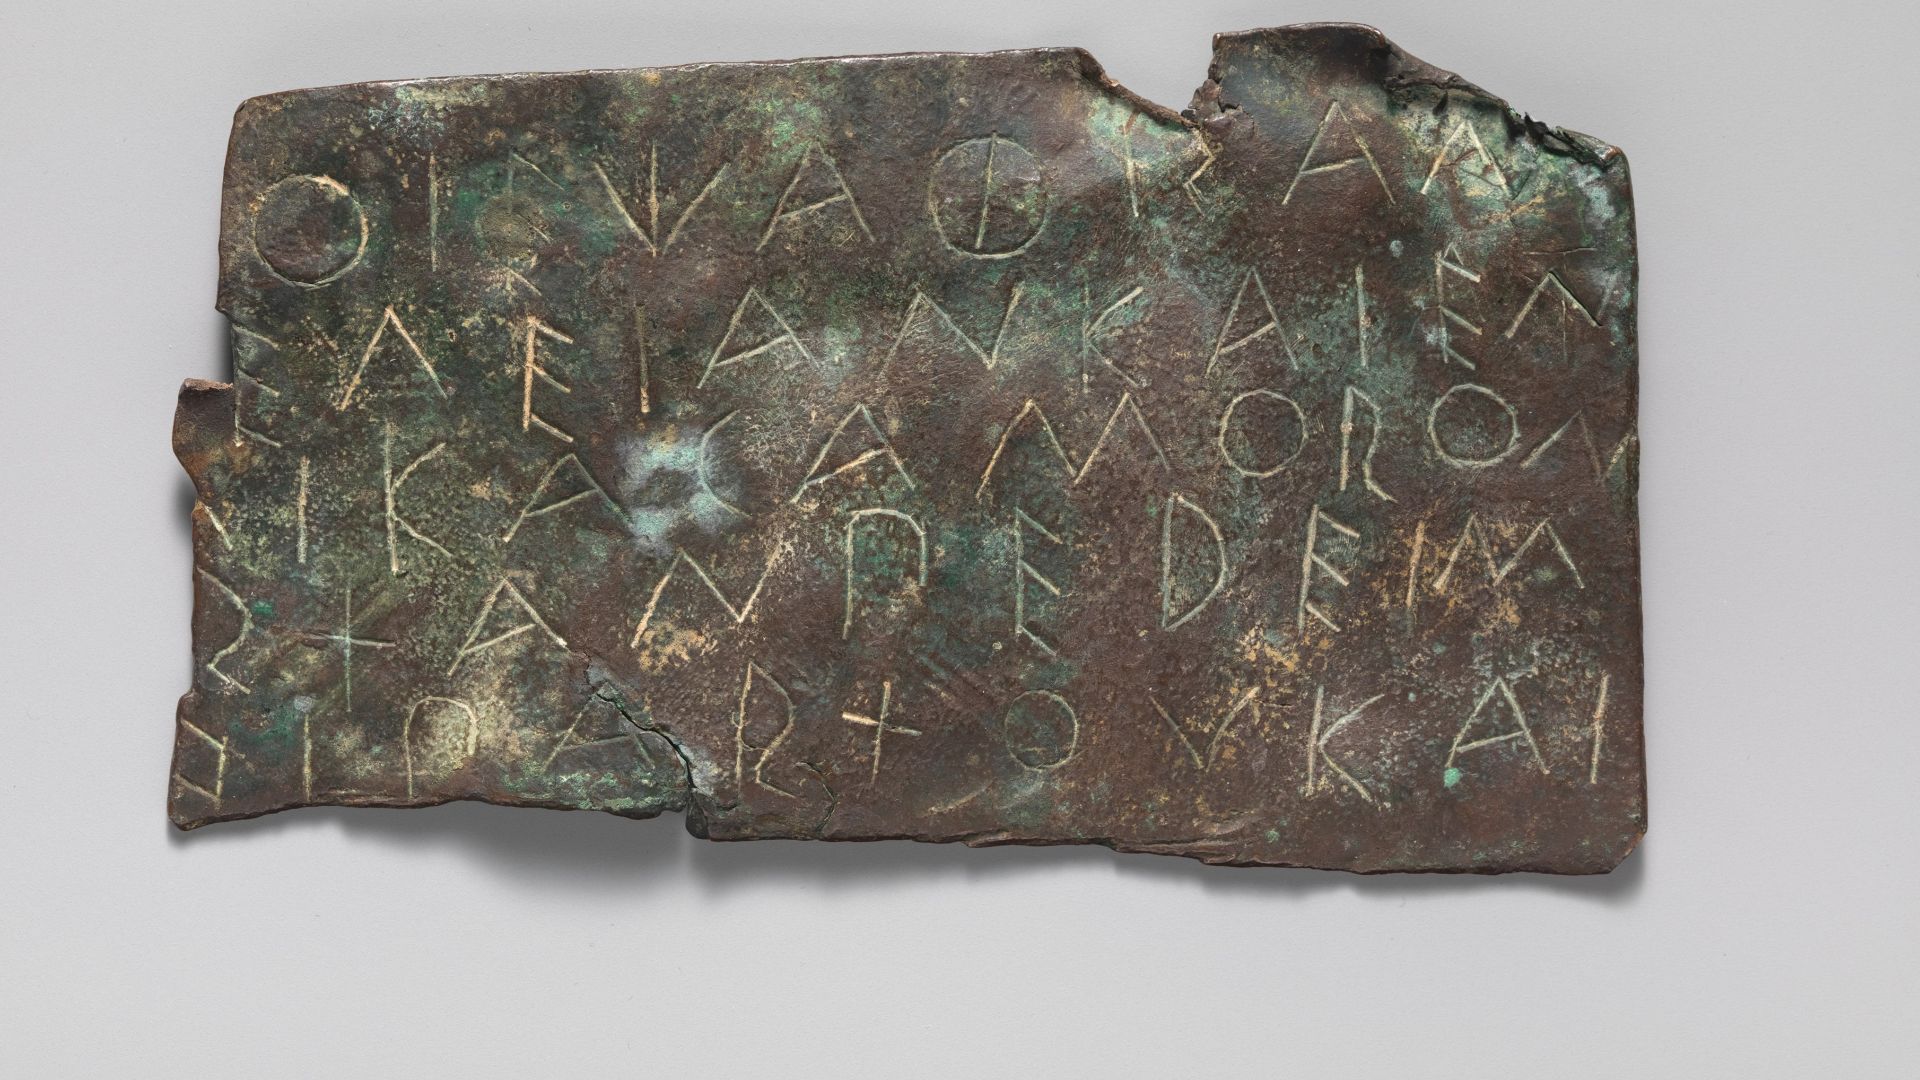 ΟΙΓΨΑΦΡΑΔ
ΕΛΕΙΑΝΚΑΙΕΠ
ΙΚΑCΑΜΟΡΟΝ
Σ+ΑΝΠΕDΕΙΜ
ΣΙΠΑΡ+ΟVΚΑΙ